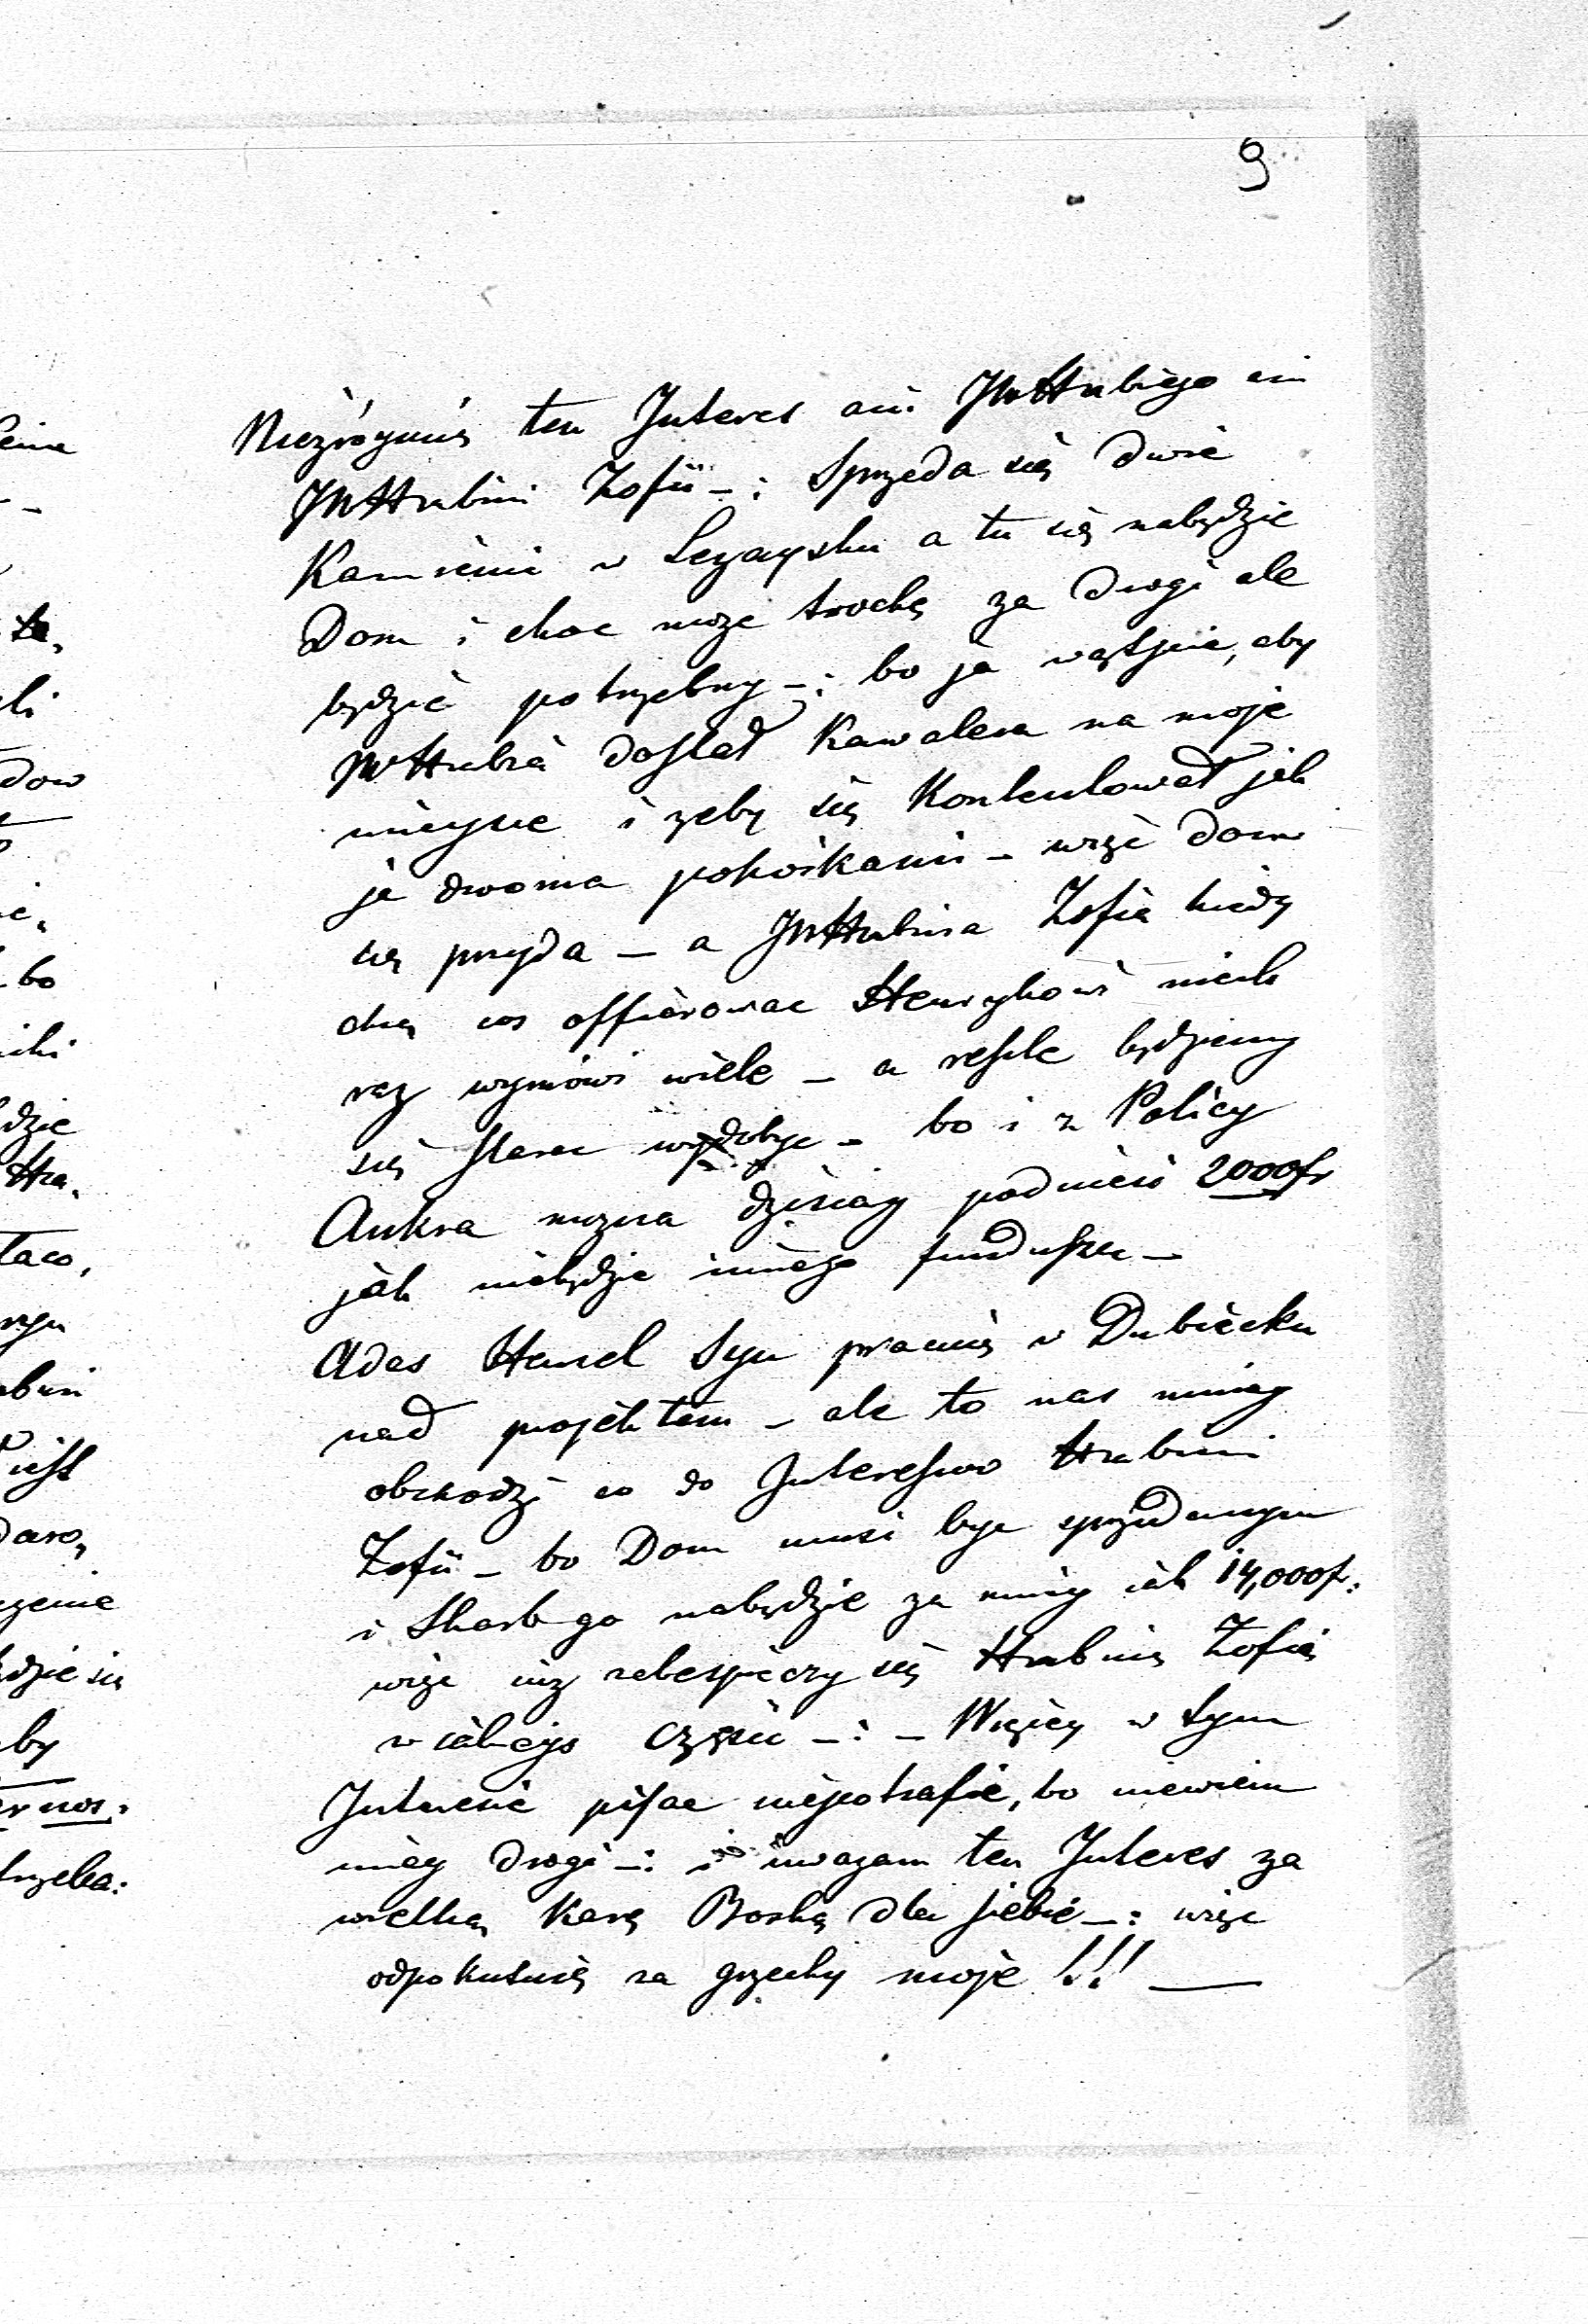 9
ten Interes ani JWHrabiego ani
JWHrabini Zofii –: Sprzeda się dwie
Kamienie w Leżaysku a tu się nabędzie
Dom i choc może trochę za drogi ale
będzie potrzebny –: bo ja wątpie, aby
JWHrabia dostał Kawalera na moje
mieysce i zeby się Kontentował jak
ja dwoma pokoikami – więc dom
się przyda – a JWHrabina Zofia kiedy
chcę cos offiarowac Henrykowi niech
raz wymowi wiele – a reszte będziemy
się starac wydobyc – bo i z Policy
Ankra mozna dzisiay podnieść 2000fr
jak niebędzie innego funduszu –
Adas Hensel Syn pracuię w Dubiecku
nad projektem – ale to nas mniey
obchodzi co do Interessow Hrabini
Zofii – bo Dom musi byc sprzedanym
i Skarb go nabędzie za mniey iak 14,000f:
więc iuz zabespieczy się Hrabinę Zofię
w iakieys Części –: – Więcey w tym
Interesie pisac niepotrafie, bo niewiem
inney drogi –: i uwazam ten Interes za
wielką Karę Boską dla siebie –: więc
odpokutuię za grzechy moje !!! —